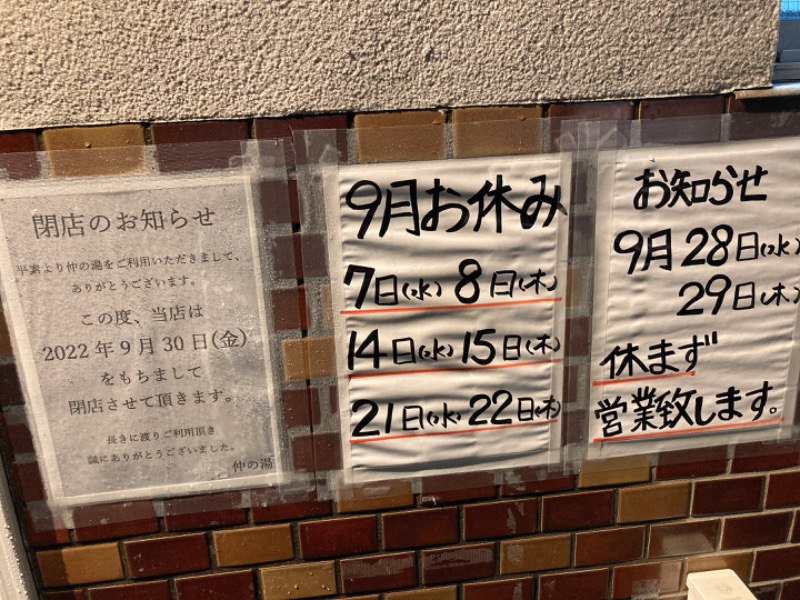 閉店のお知らせ
平素より仲の湯をご利用いただきまして、
ありがとうございます。
この度、当店は
2022年9月30日(金)
をもちまして
閉店させて頂きます。
長きに渡りご利用頂き
誠にありがとうございました。
仲の湯
9月お休み
7日(水) 8日(木)
14日(水) 15日(木)
21日(水) 22日(木)
お知らせ
9月28日(水)
29日(木)
休まず
営業致します。